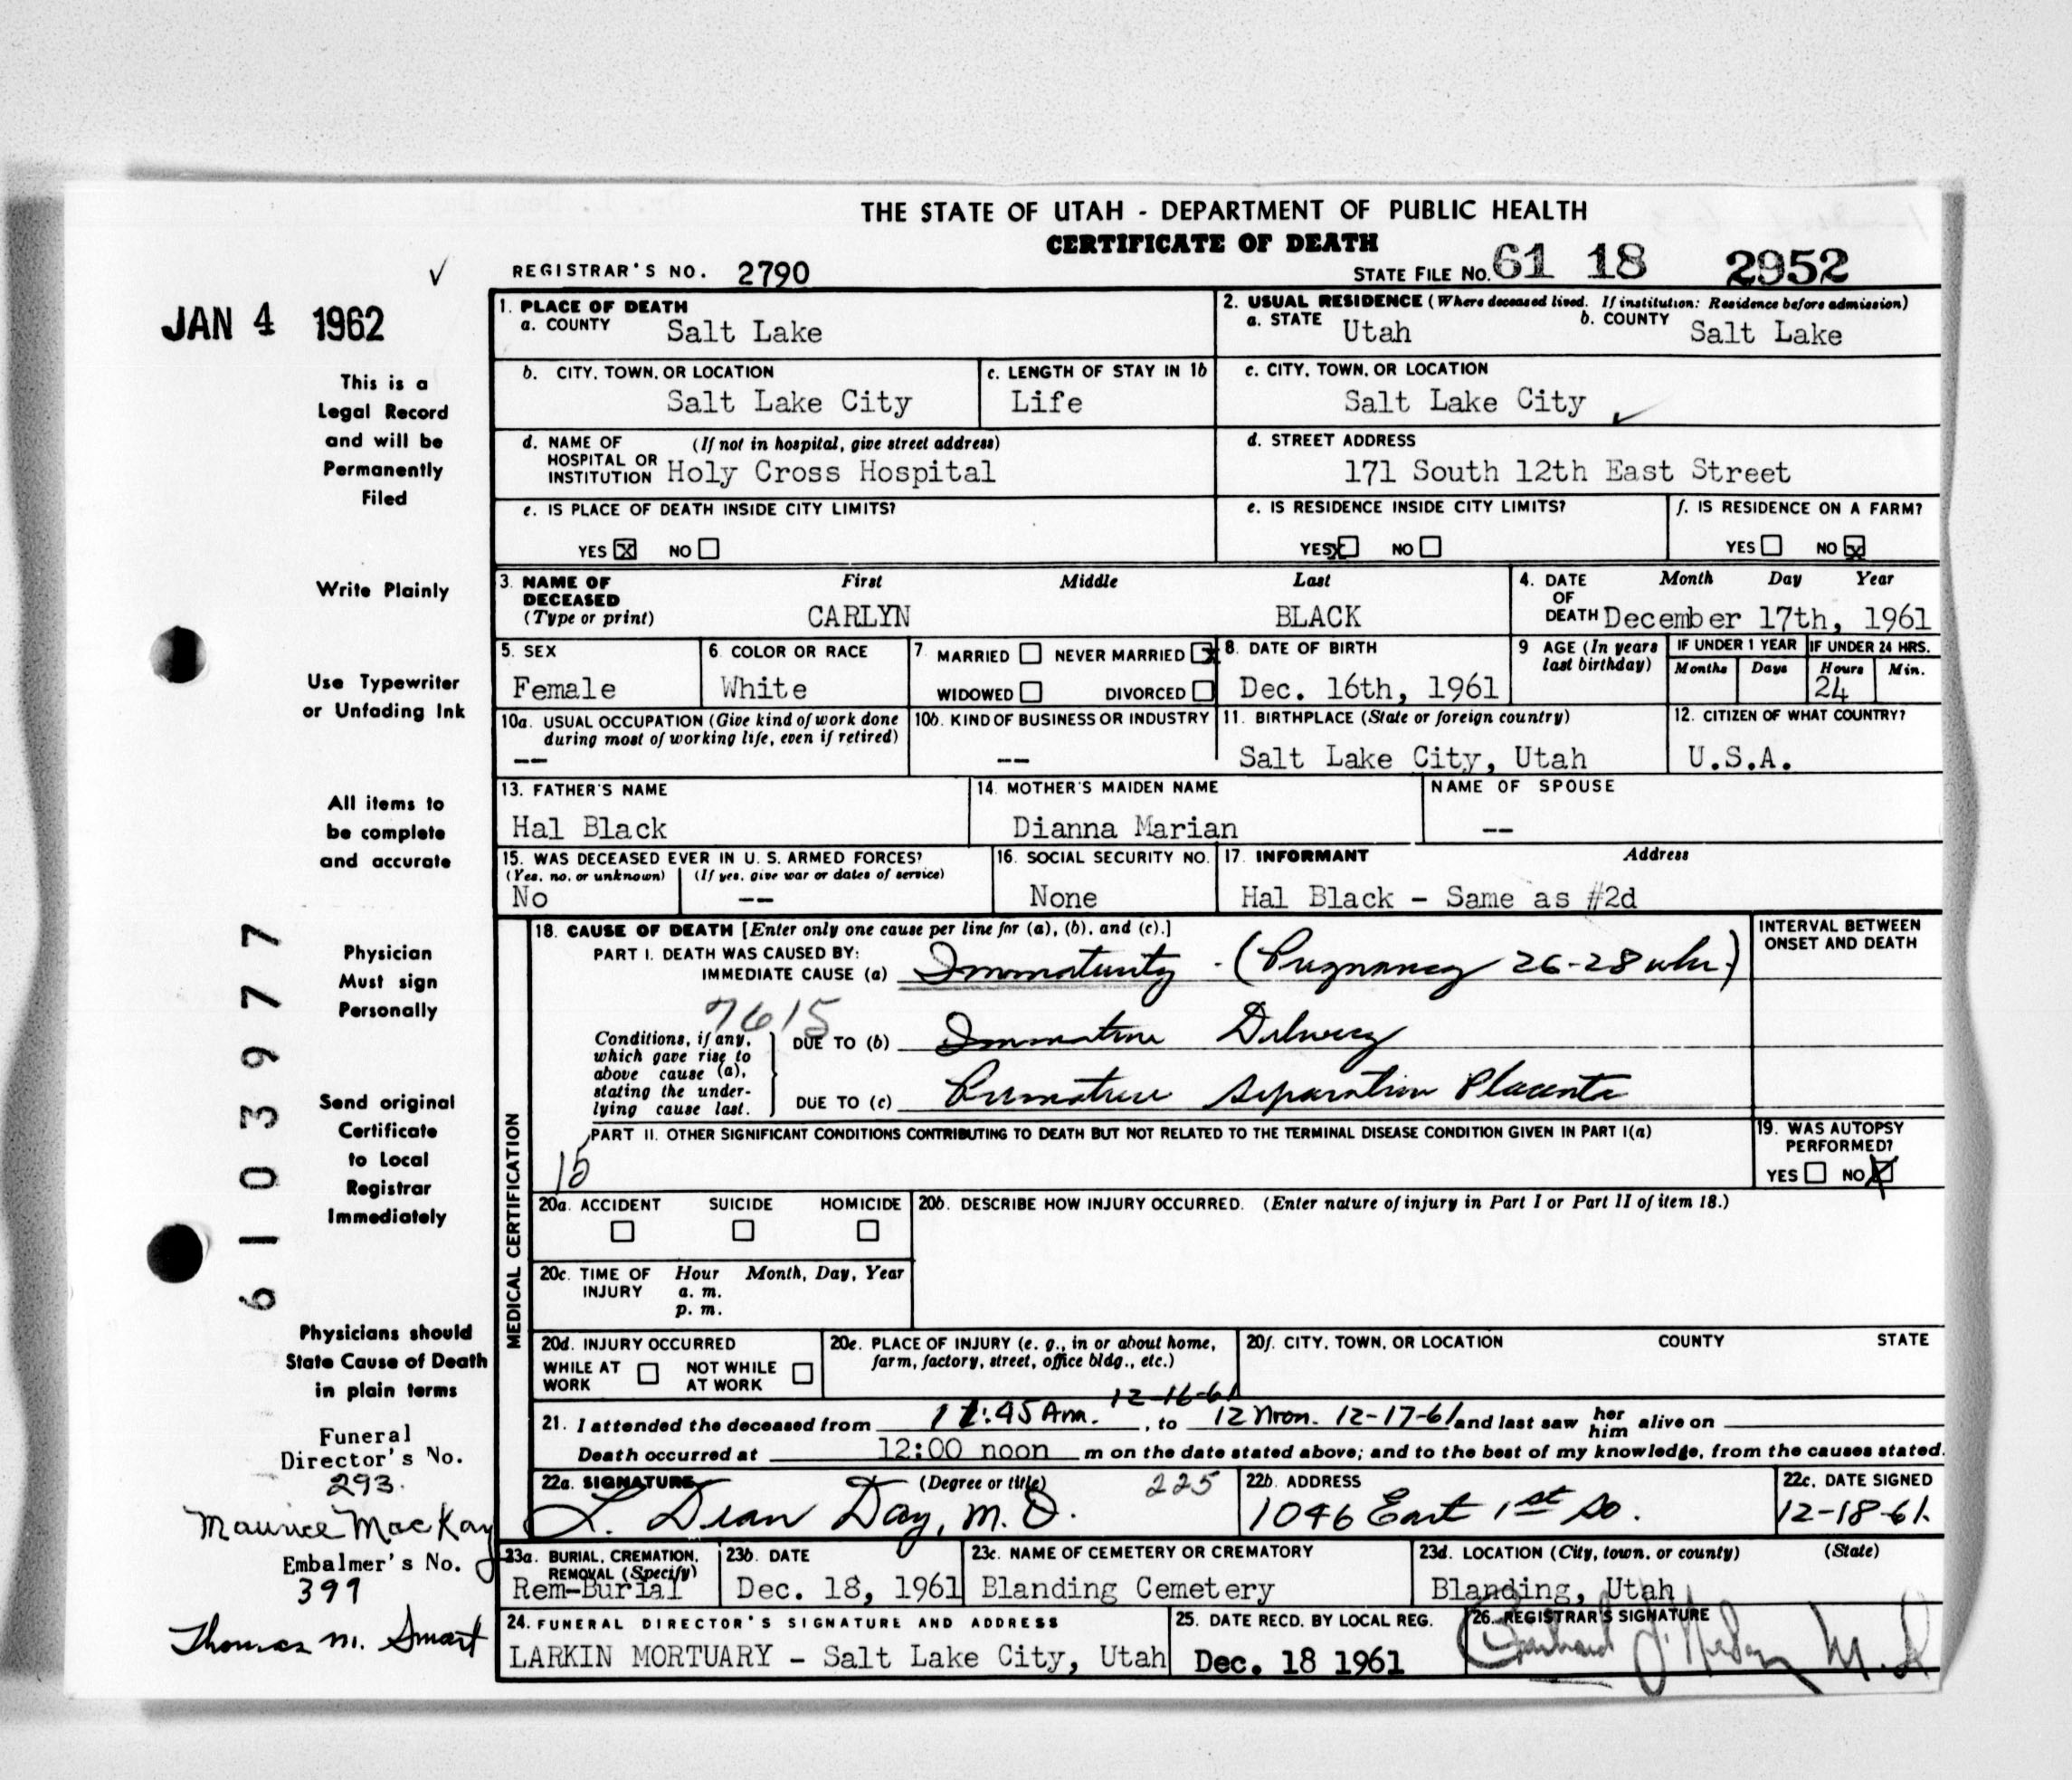 THE STATE OF UTAH - DEPARTMENT OF PUBLIC HEALTH
CERTIFICATE OF DEATH
REGISTRAR'S NO. 2790 STATE FILE NO. 61 18 2952
JAN 4 1962
This is a
Legal Record
and will be
Permanently
Filed
Write Plainly
Use Typewriter
or Unfading Ink
All items to
be complete
and accurate
Physician
Must sign
Personally
Send original
Certificate
to Local
Registrar
Immediately
Physicians should
State Cause of Death
in plain terms
Funeral
Director's No.
293.
Maurice MacKay
Embalmer's No.
399
Thomas M. Smart
6103977
1. PLACE OF DEATH
a. COUNTY Salt Lake
2. USUAL RESIDENCE (Where deceased lived. If institution: Residence before admission)
a. STATE Utah b. COUNTY Salt Lake
b. CITY, TOWN, OR LOCATION Salt Lake City
c. LENGTH OF STAY IN 1b Life
c. CITY, TOWN, OR LOCATION Salt Lake City
d. NAME OF (If not in hospital, give street address)
HOSPITAL OR
INSTITUTION Holy Cross Hospital
d. STREET ADDRESS
171 South 12th East Street
e. IS PLACE OF DEATH INSIDE CITY LIMITS?
YES X NO
e. IS RESIDENCE INSIDE CITY LIMITS?
YES X NO
f. IS RESIDENCE ON A FARM?
YES NO X
3. NAME OF DECEASED (Type or print) First Middle Last
CARLYN BLACK
4. DATE OF DEATH Month Day Year
December 17th, 1961
5. SEX
Female
6. COLOR OR RACE
White
7. MARRIED NEVER MARRIED X
WIDOWED DIVORCED
8. DATE OF BIRTH
Dec. 16th, 1961
9 AGE (In years last birthday)
IF UNDER 1 YEAR IF UNDER 24 HRS.
Months Days Hours Min.
24
10a. USUAL OCCUPATION (Give kind of work done
during most of working life, even if retired)
--
10b. KIND OF BUSINESS OR INDUSTRY
--
11. BIRTHPLACE (State or foreign country)
Salt Lake City, Utah
12. CITIZEN OF WHAT COUNTRY?
U.S.A.
13. FATHER'S NAME
Hal Black
14. MOTHER'S MAIDEN NAME
Dianna Marian
NAME OF SPOUSE
--
15. WAS DECEASED EVER IN U. S. ARMED FORCES?
(Yes, no, or unknown) (If yes, give war or dates of service)
No --
16. SOCIAL SECURITY NO.
None
17. INFORMANT Address
Hal Black - Same as #2d
MEDICAL CERTIFICATION
18. CAUSE OF DEATH [Enter only one cause per line for (a), (b), and (c).]
INTERVAL BETWEEN
ONSET AND DEATH
PART I. DEATH WAS CAUSED BY:
IMMEDIATE CAUSE (a) Immaturity - (Pregnancy 26-28 wks.)
7615
Conditions, if any,
which gave rise to
above cause (a),
stating the under-
lying cause last.
DUE TO (b) Immature Delivery
DUE TO (c) Premature Separation Placenta
PART II. OTHER SIGNIFICANT CONDITIONS CONTRIBUTING TO DEATH BUT NOT RELATED TO THE TERMINAL DISEASE CONDITION GIVEN IN PART I(a)
15
19. WAS AUTOPSY
PERFORMED?
YES NO X
20a. ACCIDENT SUICIDE HOMICIDE
20b. DESCRIBE HOW INJURY OCCURRED. (Enter nature of injury in Part I or Part II of item 18.)
20c. TIME OF INJURY Hour Month, Day, Year
a. m.
p. m.
20d. INJURY OCCURRED
WHILE AT WORK NOT WHILE AT WORK
20e. PLACE OF INJURY (e. g., in or about home,
farm, factory, street, office bldg., etc.)
20f. CITY, TOWN, OR LOCATION COUNTY STATE
12-16-61
21. I attended the deceased from 11:45 Am. , to 12 Noon. 12-17-61 and last saw her him alive on
Death occurred at 12:00 noon m on the date stated above; and to the best of my knowledge, from the causes stated.
22a. SIGNATURE (Degree or title) 225
L. Dean Day, M.D.
22b. ADDRESS
1046 East 1st So.
22c. DATE SIGNED
12-18-61.
23a. BURIAL, CREMATION,
REMOVAL (Specify)
Rem-Burial
23b. DATE
Dec. 18, 1961
23c. NAME OF CEMETERY OR CREMATORY
Blanding Cemetery
23d. LOCATION (City, town, or county) (State)
Blanding, Utah
24. FUNERAL DIRECTOR'S SIGNATURE AND ADDRESS
LARKIN MORTUARY - Salt Lake City, Utah
25. DATE RECD. BY LOCAL REG.
Dec. 18 1961
26. REGISTRAR'S SIGNATURE
M.D